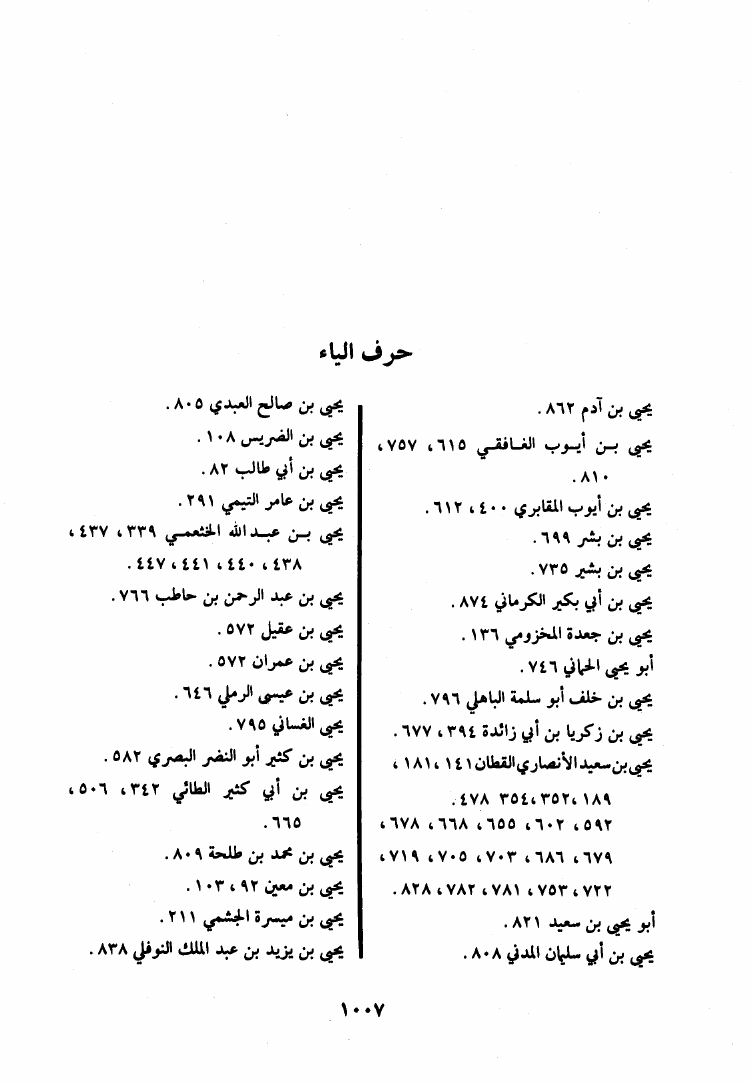 حرف الياء
يحيى بن آدم ٨٦٢.
يحيى بـن أيـوب الغـافقـي ٦١٥، ٧٥٧،
٨١٠.
يحيى بن أيوب المقابري ٤٠٠، ٦١٢.
يحيى بن بشر ٦٩٩.
يحيى بن بشير ٧٣٥.
يحيى بن أبي بكير الكرماني ٨٧٤.
يحيى بن جعدة المخزومي ١٣٦.
أبو يحيى الحماني ٧٤٦.
يحيى بن خلف أبو سلمة الباهلي ٧٩٦.
يحيى بن زكريا بن أبي زائدة ٣٩٤، ٦٧٧.
يحيى بن سعيد الأنصاري القطان ١٤١، ١٨١،
١٨٩، ٣٥٢، ٣٥٤ ٤٧٨.
٥٩٢، ٦٠٢، ٦٥٥، ٦٦٨، ٦٧٨،
٦٧٩، ٦٨٦، ٧٠٣، ٧٠٥، ٧١٩،
٧٢٢، ٧٥٣، ٧٨١، ٧٨٢، ٨٢٨.
أبو يحيى بن سعيد ٨٢١.
يحيى بن أبي سليمان المدني ٨٠٨.
يحيى بن صالح العبدي ٨٠٥.
يحيى بن الضريس ١٠٨.
يحيى بن أبي طالب ٨٢.
يحيى بن عامر التيمي ٢٩١.
يحيى بـن عبـد الله الخثعمـي ٣٣٩، ٤٣٧،
٤٣٨، ٤٤٠، ٤٤١، ٤٤٧.
يحيى بن عبد الرحمن بن حاطب ٧٦٦.
يحيى بن عقيل ٥٧٢.
يحيى بن عمران ٥٧٢.
يحيى بن عيسى الرملي ٦٤٦.
يحيى الغساني ٧٩٥.
يحيى بن كثير أبو النضر البصري ٥٨٢.
يحيى بن أبي كثير الطائي ٣٤٢، ٥٠٦،
٦٦٥.
يحيى بن محمد بن طلحة ٨٠٩.
يحيى بن معين ٩٢، ١٠٣.
يحيى بن ميسرة الجشمي ٢١١.
يحيى بن يزيد بن عبد الملك النوفلي ٨٣٨.
١٠٠٧